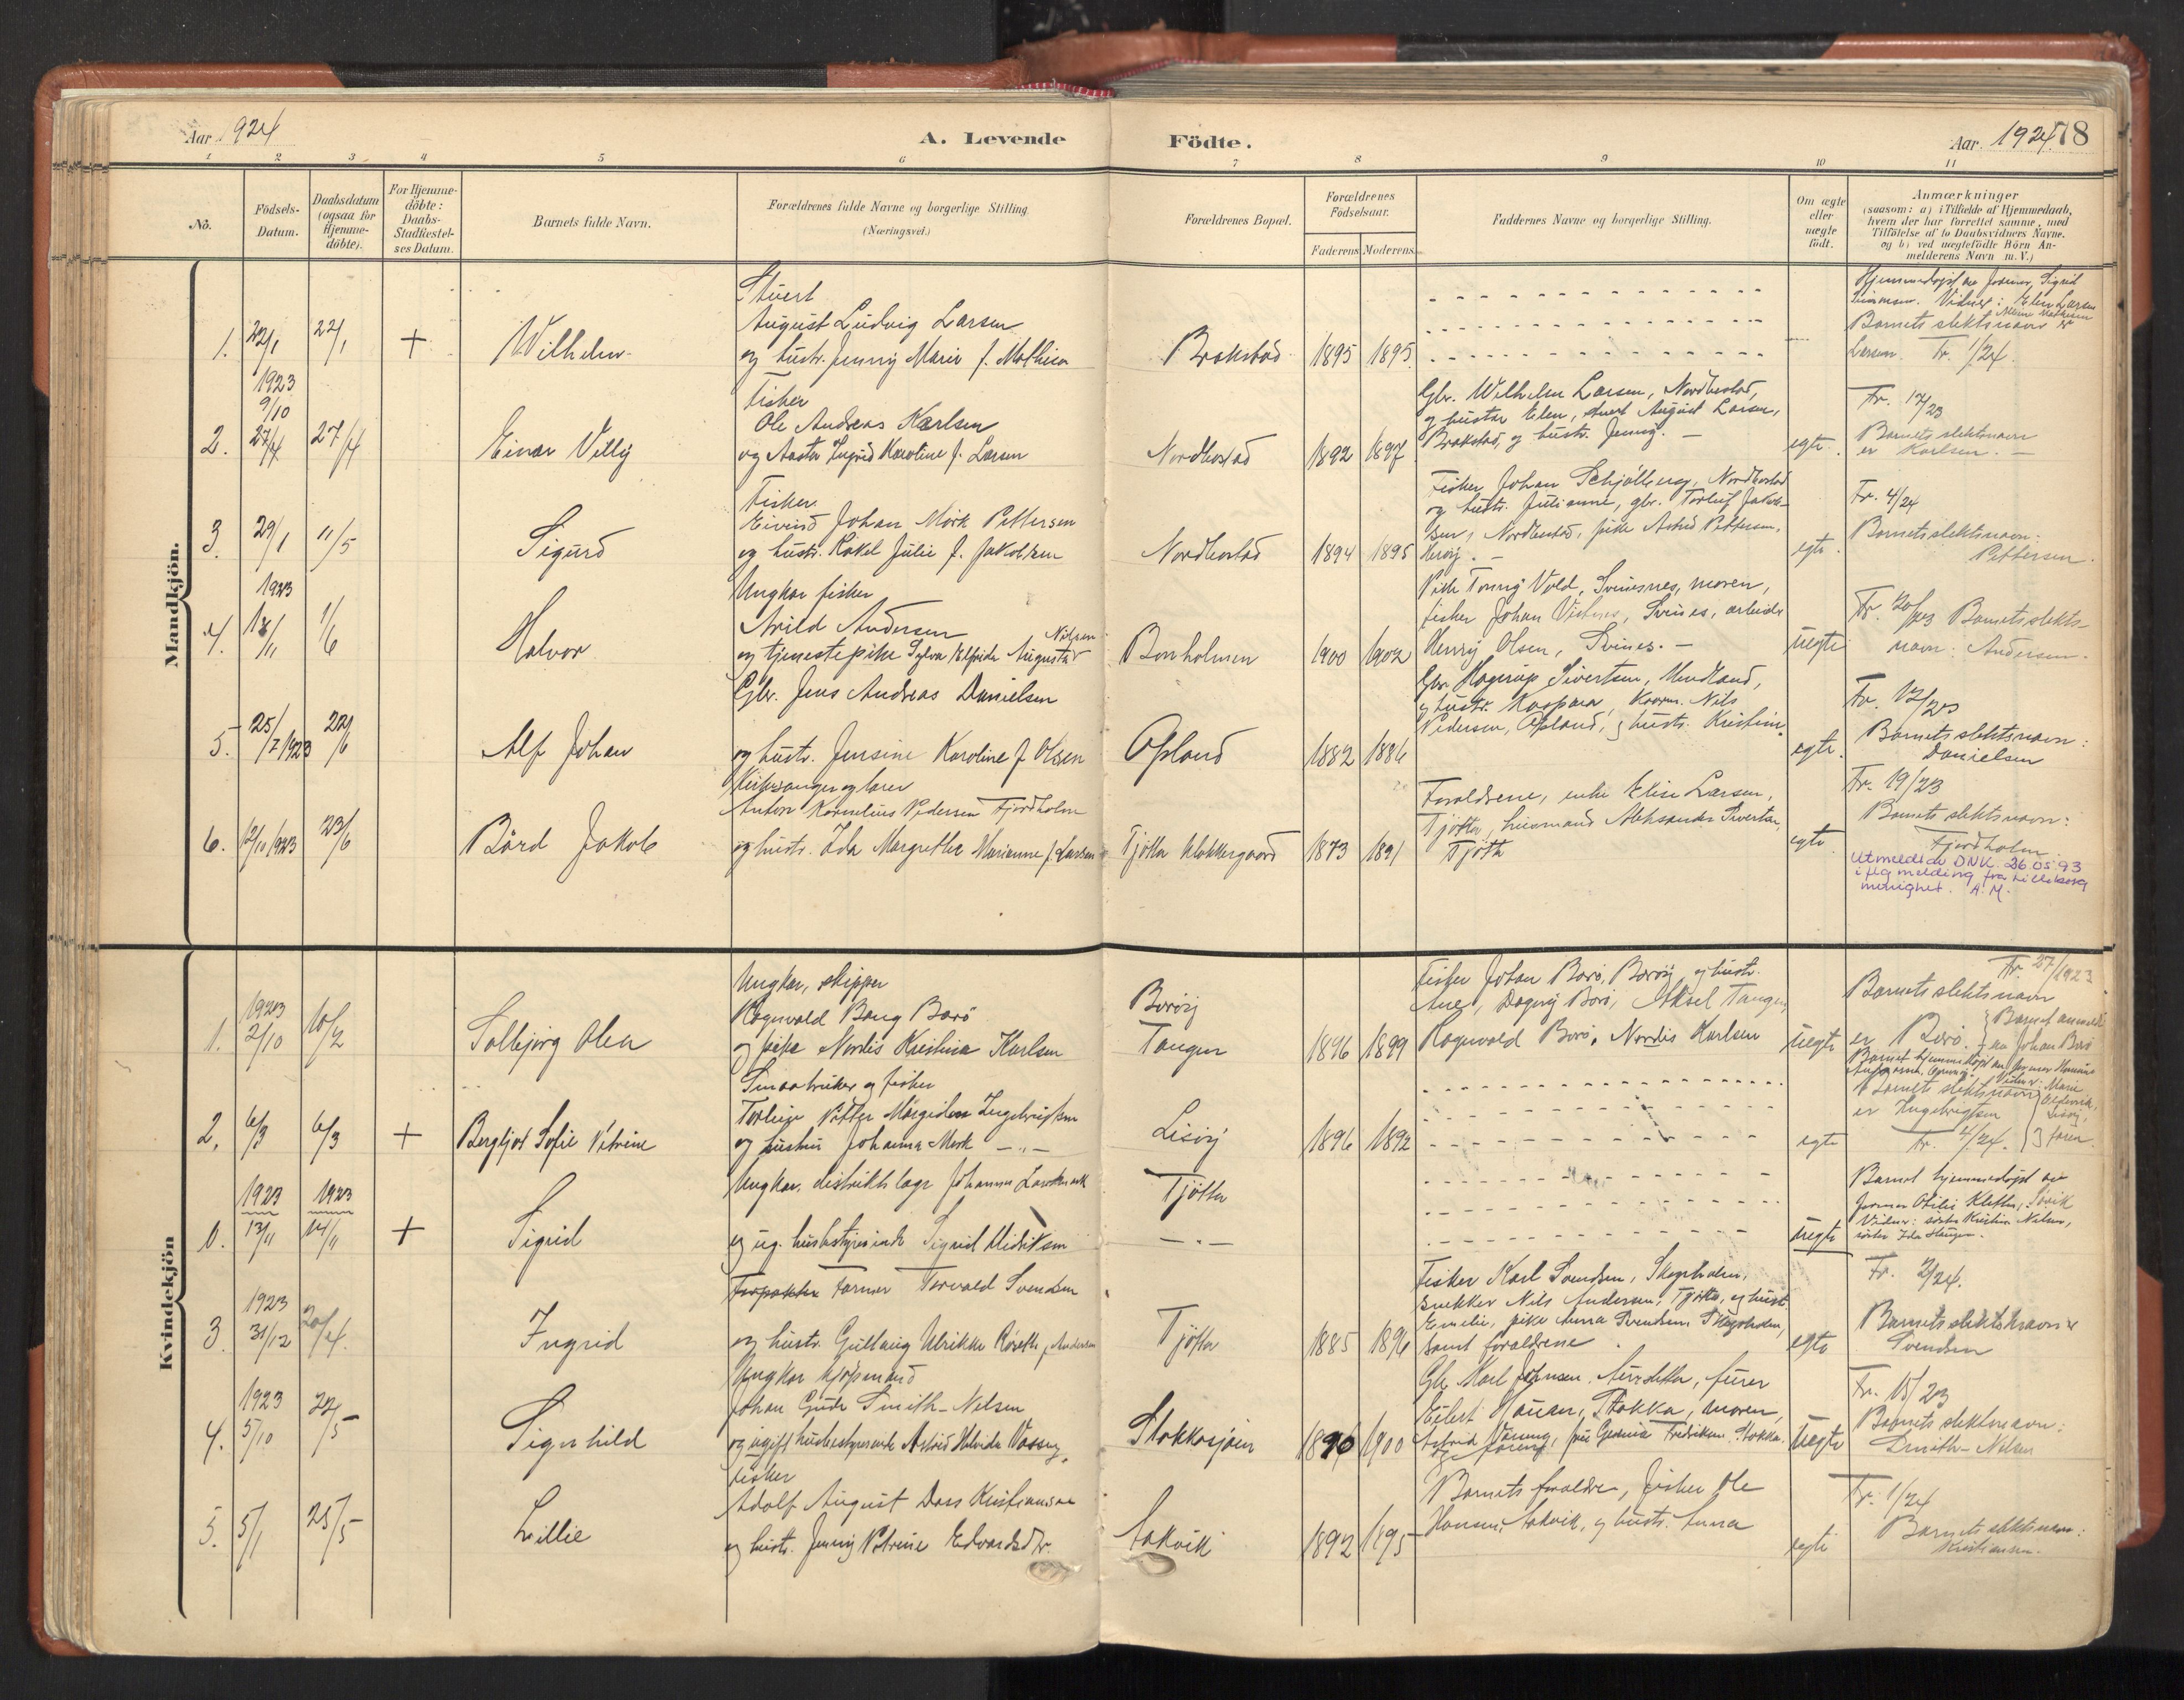 Aar 1924
A. Levende Födte.
Aar 1924. 78
1 2 3 4 5 6 7 8 9 10 11
No.
Födsels-Datum.
Daabsdatum (ogsaa for Hjemme-döbte).
For Hjemme-döbte: Daabs-Stadfæstel-ses Datum.
Barnets fulde Navn.
Forældrenes fulde Navne og borgerlige Stilling (Næringsvei.)
Forældrenes Bopæl.
Forældrenes Födselsaar.
Faderens Moderens
Faddernes Navne og borgerlige Stilling.
Om ægte eller uægte födt.
Anmærkninger
(saasom: a) i Tilfælde af Hjemmedaab,
hvem der har forrettet samme, med
Tilföielse af to Daabsvidners Navne.
og b) ved uægtefödte Börn An-
melderens Navn m. V.)
Mandkjön.
1. 22/1 22/1 + Wilhelm
Stuert
August Ludvig Larsen
og hustr. Jenny Marie f. Mathisen
Brakstad 1895 1895
Hjemmedøpt av Jormor Sigrid
Simonsen. Vidner: Elen Larsen
Barnets slektsnavn er
Larsen. Fr. 1/24.
2. 1923 9/10 27/4 27/4 Einar Villy
Fisker
Ole Andreas Karlsen
og Aasta Ingrid Karoline f. Larsen
Nordbostad 1892 1897
Gbr. Wilhelm Larsen, Nordbostad,
og hustr Elen, stuert August Larsen,
Brakstad, og hustr. Jenny. —
egte.
Fr. 17/23
Barnets slektsnavn
er Karlsen. —
3. 29/1 11/5 Sigurd
Fisker
Eivind Johan Mörk Pettersen
og hustr. Rakel Julie f. Jakobsen
Nordbostad 1894 1895
Fisker Johan Schjölberg, Nordbostad
og hustr. Julianne, gbr. Torleif Jakob-
sen, Nordbostad, pike Astrid Pettersen,
Heröy. —
egte.
Fr. 4/24
Barnets slektsnavn:
Pettersen.
4. 1923 18/11 1/6 Halvor
Ungkar fisker
Arild Andersen
og tjenestepike Sylva Elfrida Augusta Nilsen
Bonholmen 1900 1902
Pike Tonny Vold, Svinesnes, moren,
fisker Johan, Svines, arbeider
Henry Olsen, Svines. —
uegte
Fr. 20/23 Barnets slekts-
navn: Andersen.
5. 25/7 1923 22/6 Alf Johan
Gbr. Jens Andreas Danielsen
og hustr. Jensine Karoline f. Olsen
Opland 1882 1886
Gbr. Hagerup Sivertsen, Mindland,
og hustr. Kaspara, Nils
Pedersen, Opland, og hustr. Kristine.
egte.
Fr. 12/23
Barnets slektsnavn:
Danielsen
6. 12/10 1923 23/6 Bård Jakob
Kirkesanger og lærer
Anton Kornelius Pedersen Fjordholm
og hustr. Ida Margrethe Marianne f. Larsen
Tjötta klokkergaard 1873 1891
Forældrene, enke Elise Larsen,
Tjötta, husmand Aleksander Sivertsen,
Tjötta
egte
Fr. 19/23
Barnets slektsnavn:
Fjordholm.
Utmeldt av DNK. 26.05.93
iflg melding fra Lilleborg
menighet. A.M.
Kvindekjön
1. 1923 2/10 10/2 Solbjörg Olea
Ungkar, skipper
Ragnvald Bang Barö
og pike Nordis Kristina Karlsen
Boröy
Tangen 1896 1899
Fisker Johan Barö, Boröy, og hustr.
Ane, Dagny Barö, Aksel Tangen,
Ragnvald Barö, Nordis Karlsen
uegte
Fr. 27/1923
Barnets slektsnavn
er Barö. Barnet anmeldt
av Johan Barö
2. 6/3 6/3 + Bergljot Sofie Petrine
Smaabruker og fisker
Torleif Petter Ingebrigtsen
og hustru Johanna Mork —„—
Lisöy 1896 1892
egte
Barnet hjemmedöpt av Jormor
Barnets slektsnavn
er Ingebrigtsen
Fr. 4/24.
0. 1923 13/11 1923 14/11 + Sigrid
Ungkar, distriktslæge Johannes Landmark
og ug. husbestyrerinde Sigrid Didriksen
Tjötta
—„—
uegte
Barnet hjemmedöpt av
Jormor Otilie Klette, Sövik
Vidner: söster Kristine Nilsen,
söster Ida Haugen.
3. 1923 31/12 20/4. Ingrid
Forpakter Farmer Torvald Svendsen
og hustr. Gullaug Ulrikke f. Andersen
Tjötta 1885 1896
Fisker Karl Svendsen, Skogsholm,
snekker Nils Andersen, Tjötta, og hustr.
Emelie, pike Anna Svendsen, Skogsholm,
samt forældrene
egte
Fr. 2/24.
Barnets slektsnavn er
Svendsen
4. 1923 5/10 22/5 Signhild
Ungkar kjöpmand
Johan Gude Smith-Nilsen
og ugift husbestyrerinde Astrid Valvida Vassing
Stokkasjöen 1890 1900
Gb. Karl Johnsen, furer
Edert Hauan, Stokka, moren,
uegte
Fr. 15/23
Barnets slektsnavn:
Smith-Nilsen
5. 5/1 25/5 Lillie
fisker
Adolf August Dass Kristiansen
og hustr. Jenny Petrine Edvardsdtr.
Aakvik 1892 1895
Barnets forældre, fisker Ole
Hansen, Aakvik, og hustr. Anna
egte
Fr. 1/24
Barnets slektsnavn:
Kristiansen.